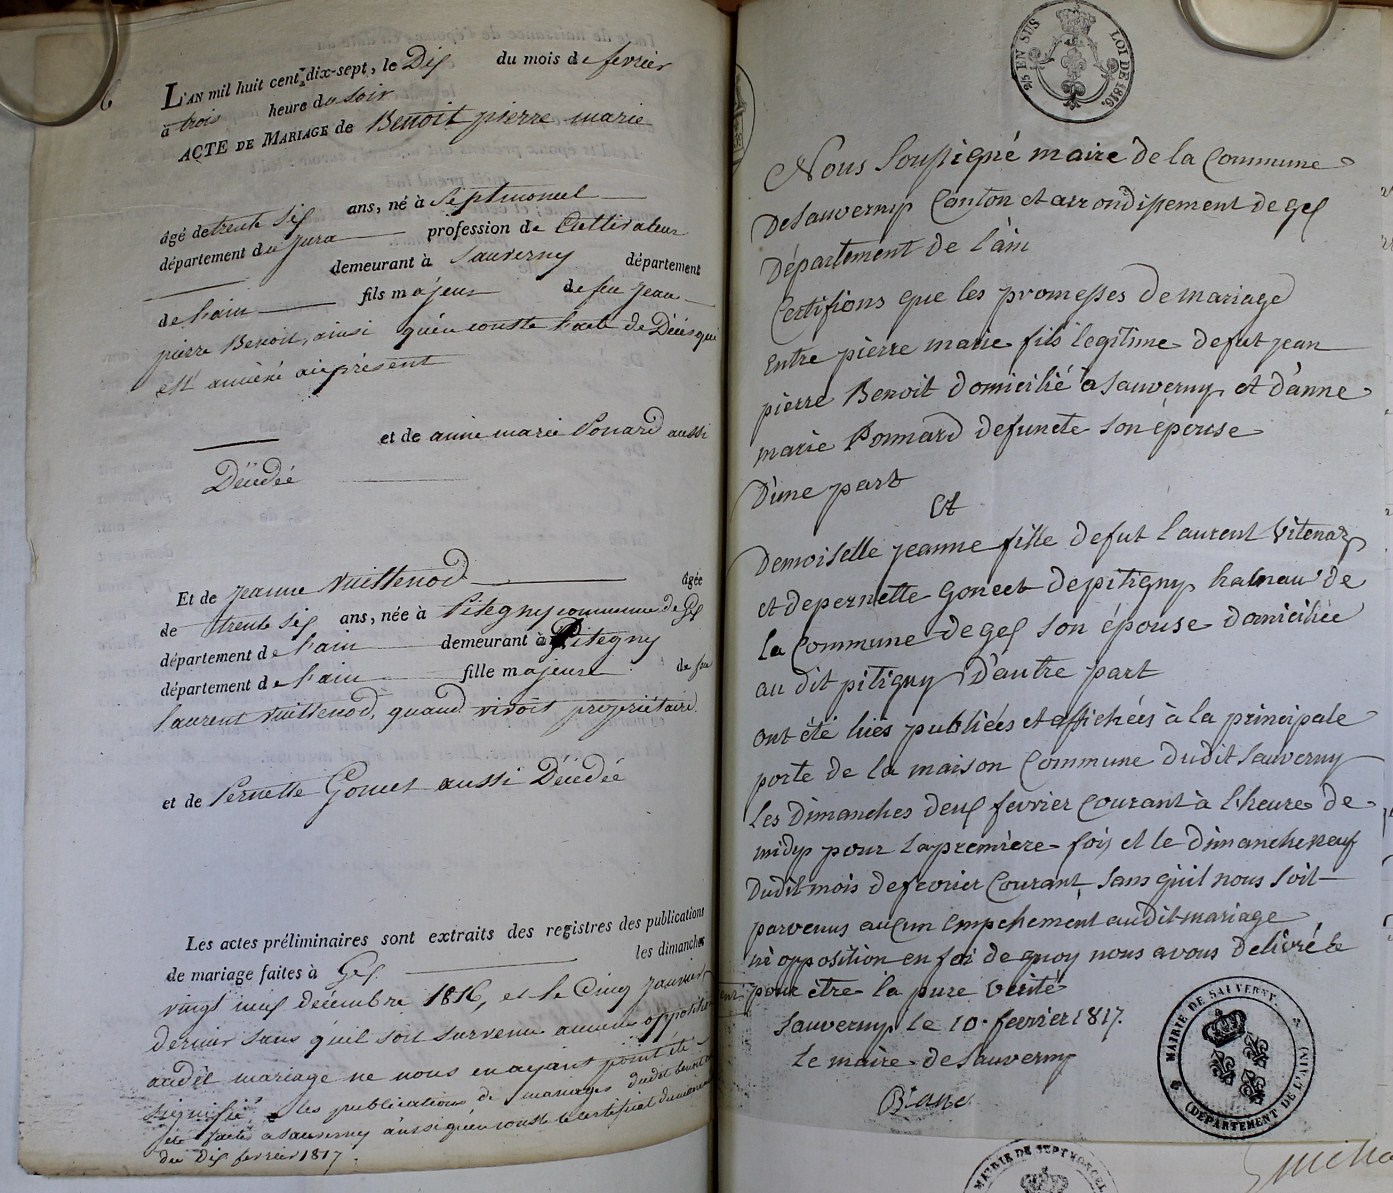 L'AN mil huit cent dix-sept, le Dix du mois de fevrier
à trois heure du soir
ACTE DE MARIAGE de Benoit pierre marie
âgé de trente six ans, né à Septmoncel
département du jura profession de Cultivateur
demeurant à Sauverny département
de l'ain fils majeur de feu jean
pierre Benoit, ainsi qu'en conste l'acte de Décès qui
est annéxé au présent
et de anne marie Ponard aussi
Décédée
Et de jeanne Vuittenod âgée
de trente six ans, née à Pitegny commune de Gex
département de l'ain demeurant à Pitegny
département de l'ain fille majeure de feu
laurent Vuittenod, quand vivoit propriétaire
et de Pernette Gonet aussi Décédée
Les actes préliminaires sont extraits des registres des publications
de mariage faites à Gex les dimanches
vingt neuf decembre 1816, et le Cinq janvier
dernier sans qu'il soit survenu aucune opposition
audit mariage ne nous en ayant point été
signifié les publications de mariages dudit benoit
été faites a Sauverny ainsi qu'en conste le certificat du maire
du Dix fevrier 1817.
2/5 EN SUS LOI DE 1816.
Nous Soussigné maire de la Commune
De Sauverny Canton et arrondissement de gex
Département de l'ain
Certifions que les promesses de mariage
Entre pierre marie fils legitime de fut jean
pierre Benoit domicilié a Sauverny et d'anne
marie Ponnard defuncte son épouse
D'une part
Et
Demoiselle jeanne fille de fut laurent Vitenaz
et de pernette Gonect de pitigny hameau de
la Commune de gex son épouse domiciliée
au dit pitigny D'autre part
ont été luës publiées et affichées à la principale
porte de la maison Commune du dit Sauverny
Les Dimanches deux fevrier Courant à l'heure de
midy pour la première fois et le dimanche neuf
Dudit mois de fevrier Courant sans qu'il nous soit
parvenus aucun empehement audit mariage
ni opposition en foi de quoy nous avons delivré le
pour être la pure Verité
Sauverny le 10 fevrier 1817.
Le maire de Sauverny
Blanc
MAIRIE DE SAUVERNY.
(DÉPARTEMENT DE L'AIN)
MAIRIE DE SEPTMONCEL